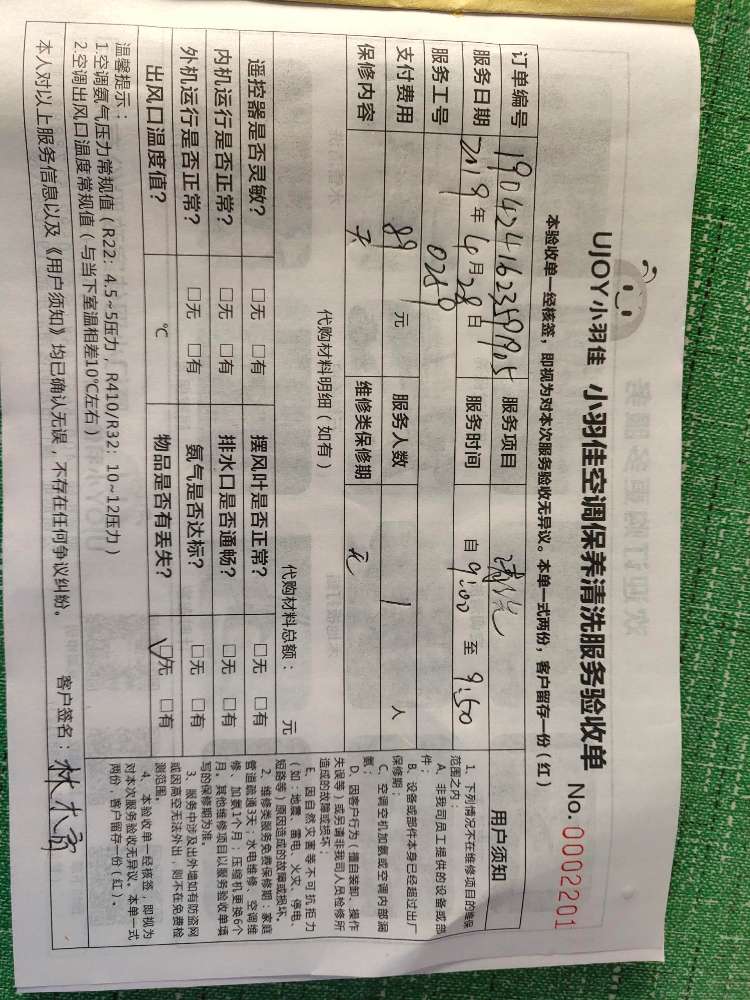 UJOY小羽佳 小羽佳空调保养清洗服务验收单 No. 0002201
本验收单一经核签，即视为对本次服务验收无异议。本单一式两份，客户留存一份（红）
订单编号 服务项目 清洗
服务日期 2019年4月28日 服务时间 自 9:00 至 9:50
服务工号 0259
支付费用 89 元 服务人数 1 人
保修内容 无 维修类保修期 无
代购材料明细（如有） 代购材料总额： 元
遥控器是否灵敏？ □无 □有 摆风叶是否正常？ □无 □有
内机运行是否正常？ □无 □有 排水口是否通畅？ □无 □有
外机运行是否正常？ □无 □有 氨气是否达标？ □无 □有
出风口温度值？ ℃ 物品是否有丢失？ ☑无 □有
温馨提示：
1.空调氨气压力常规值（R22：4.5~5压力，R410/R32：10~12压力）
2.空调出风口温度常规值（与当下室温相差10℃左右）
本人对以上服务信息以及《用户须知》均已确认无误，不存在任何争议纠纷。 客户签名：
用户须知
1、下列情况不在维修项目的维保
范围之内：
A、非我司员工提供的设备或部
件；
B、设备或部件本身已经超过出厂
保修期；
C、空调空机加氨或空调内部漏
氨；
D、因客户行为（擅自装卸、操作
失误等）或另请非我司人员检修所
造成的故障或损坏；
E、因自然灾害等不可抗拒力
（如：地震、雷电、火灾、停电、
短路等）原因造成的故障或损坏。
2、维修类服务免费保修期：家庭
管道疏通3天、水电维修、空调维
修、加氨1个月；压缩机更换6个
月。其他维修项目以服务验收单填
写的保修期为准。
3、服务中涉及出外墙如有防盗网
或因高空无法外出，则不在免费检
测范围。
4、本验收单一经核签，即视为
对本次服务验收无异议。本单一式
两份，客户留存一份（红）。